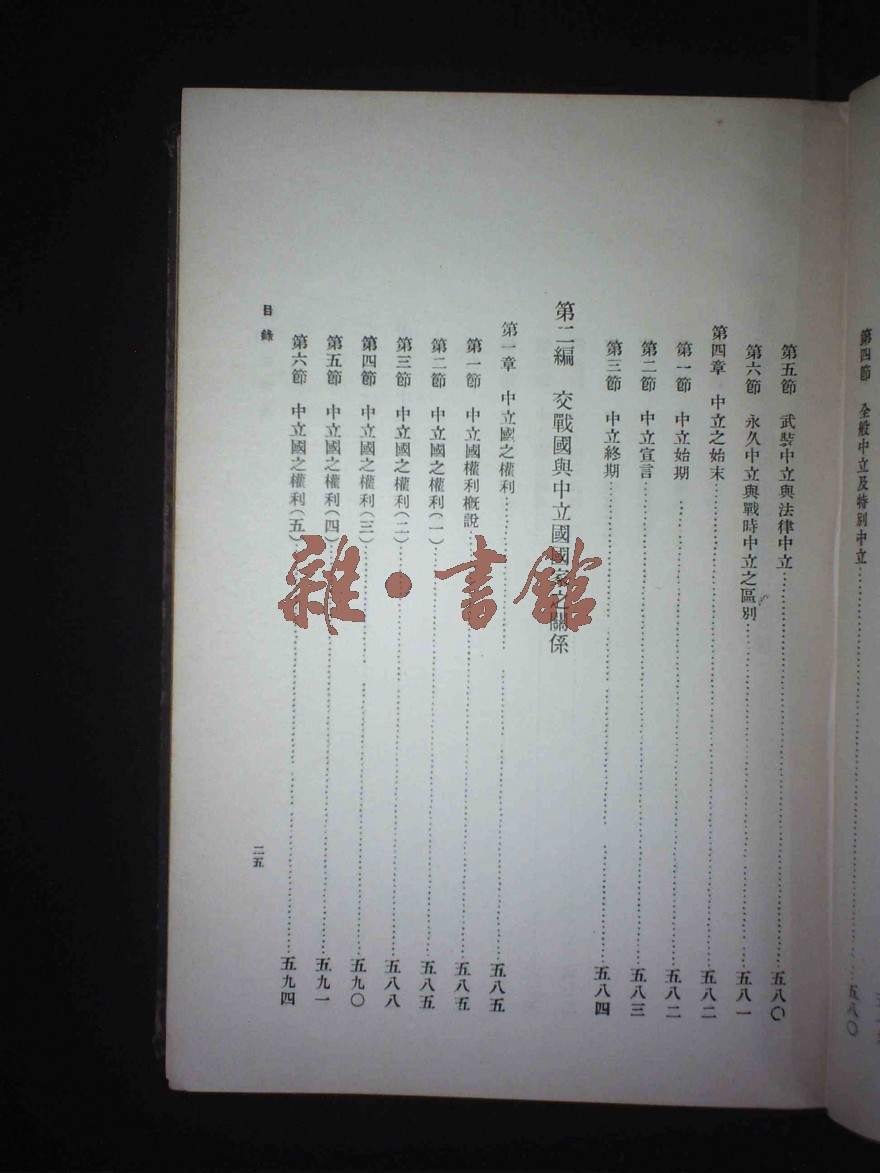 第四節 全般中立及特別中立……五八〇
第五節 武裝中立與法律中立……五八〇
第六節 永久中立與戰時中立之區別……五八一
第四章 中立之始末……五八二
第一節 中立始期……五八二
第二節 中立宣言……五八三
第三節 中立終期……五八四
第二編 交戰國與中立國國家之關係
第一章 中立國之權利……五八五
第一節 中立國權利概說……五八五
第二節 中立國之權利(一)……五八五
第三節 中立國之權利(二)……五八八
第四節 中立國之權利(三)……五九〇
第五節 中立國之權利(四)……五九一
第六節 中立國之權利(五)……五九四
目錄
二五
雜·書館